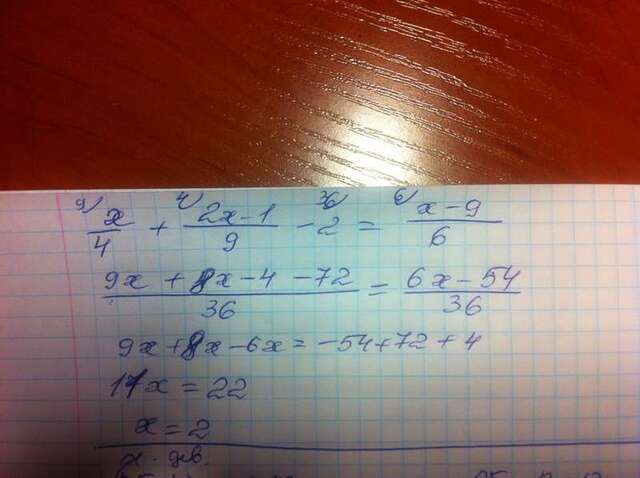 9) x/4 + 4) (2x-1)/9 - 36) 2 = 6) (x-9)/6
(9x + 8x - 4 - 72)/36 = (6x - 54)/36
9x + 8x - 6x = -54 + 72 + 4
11x = 22
x = 2